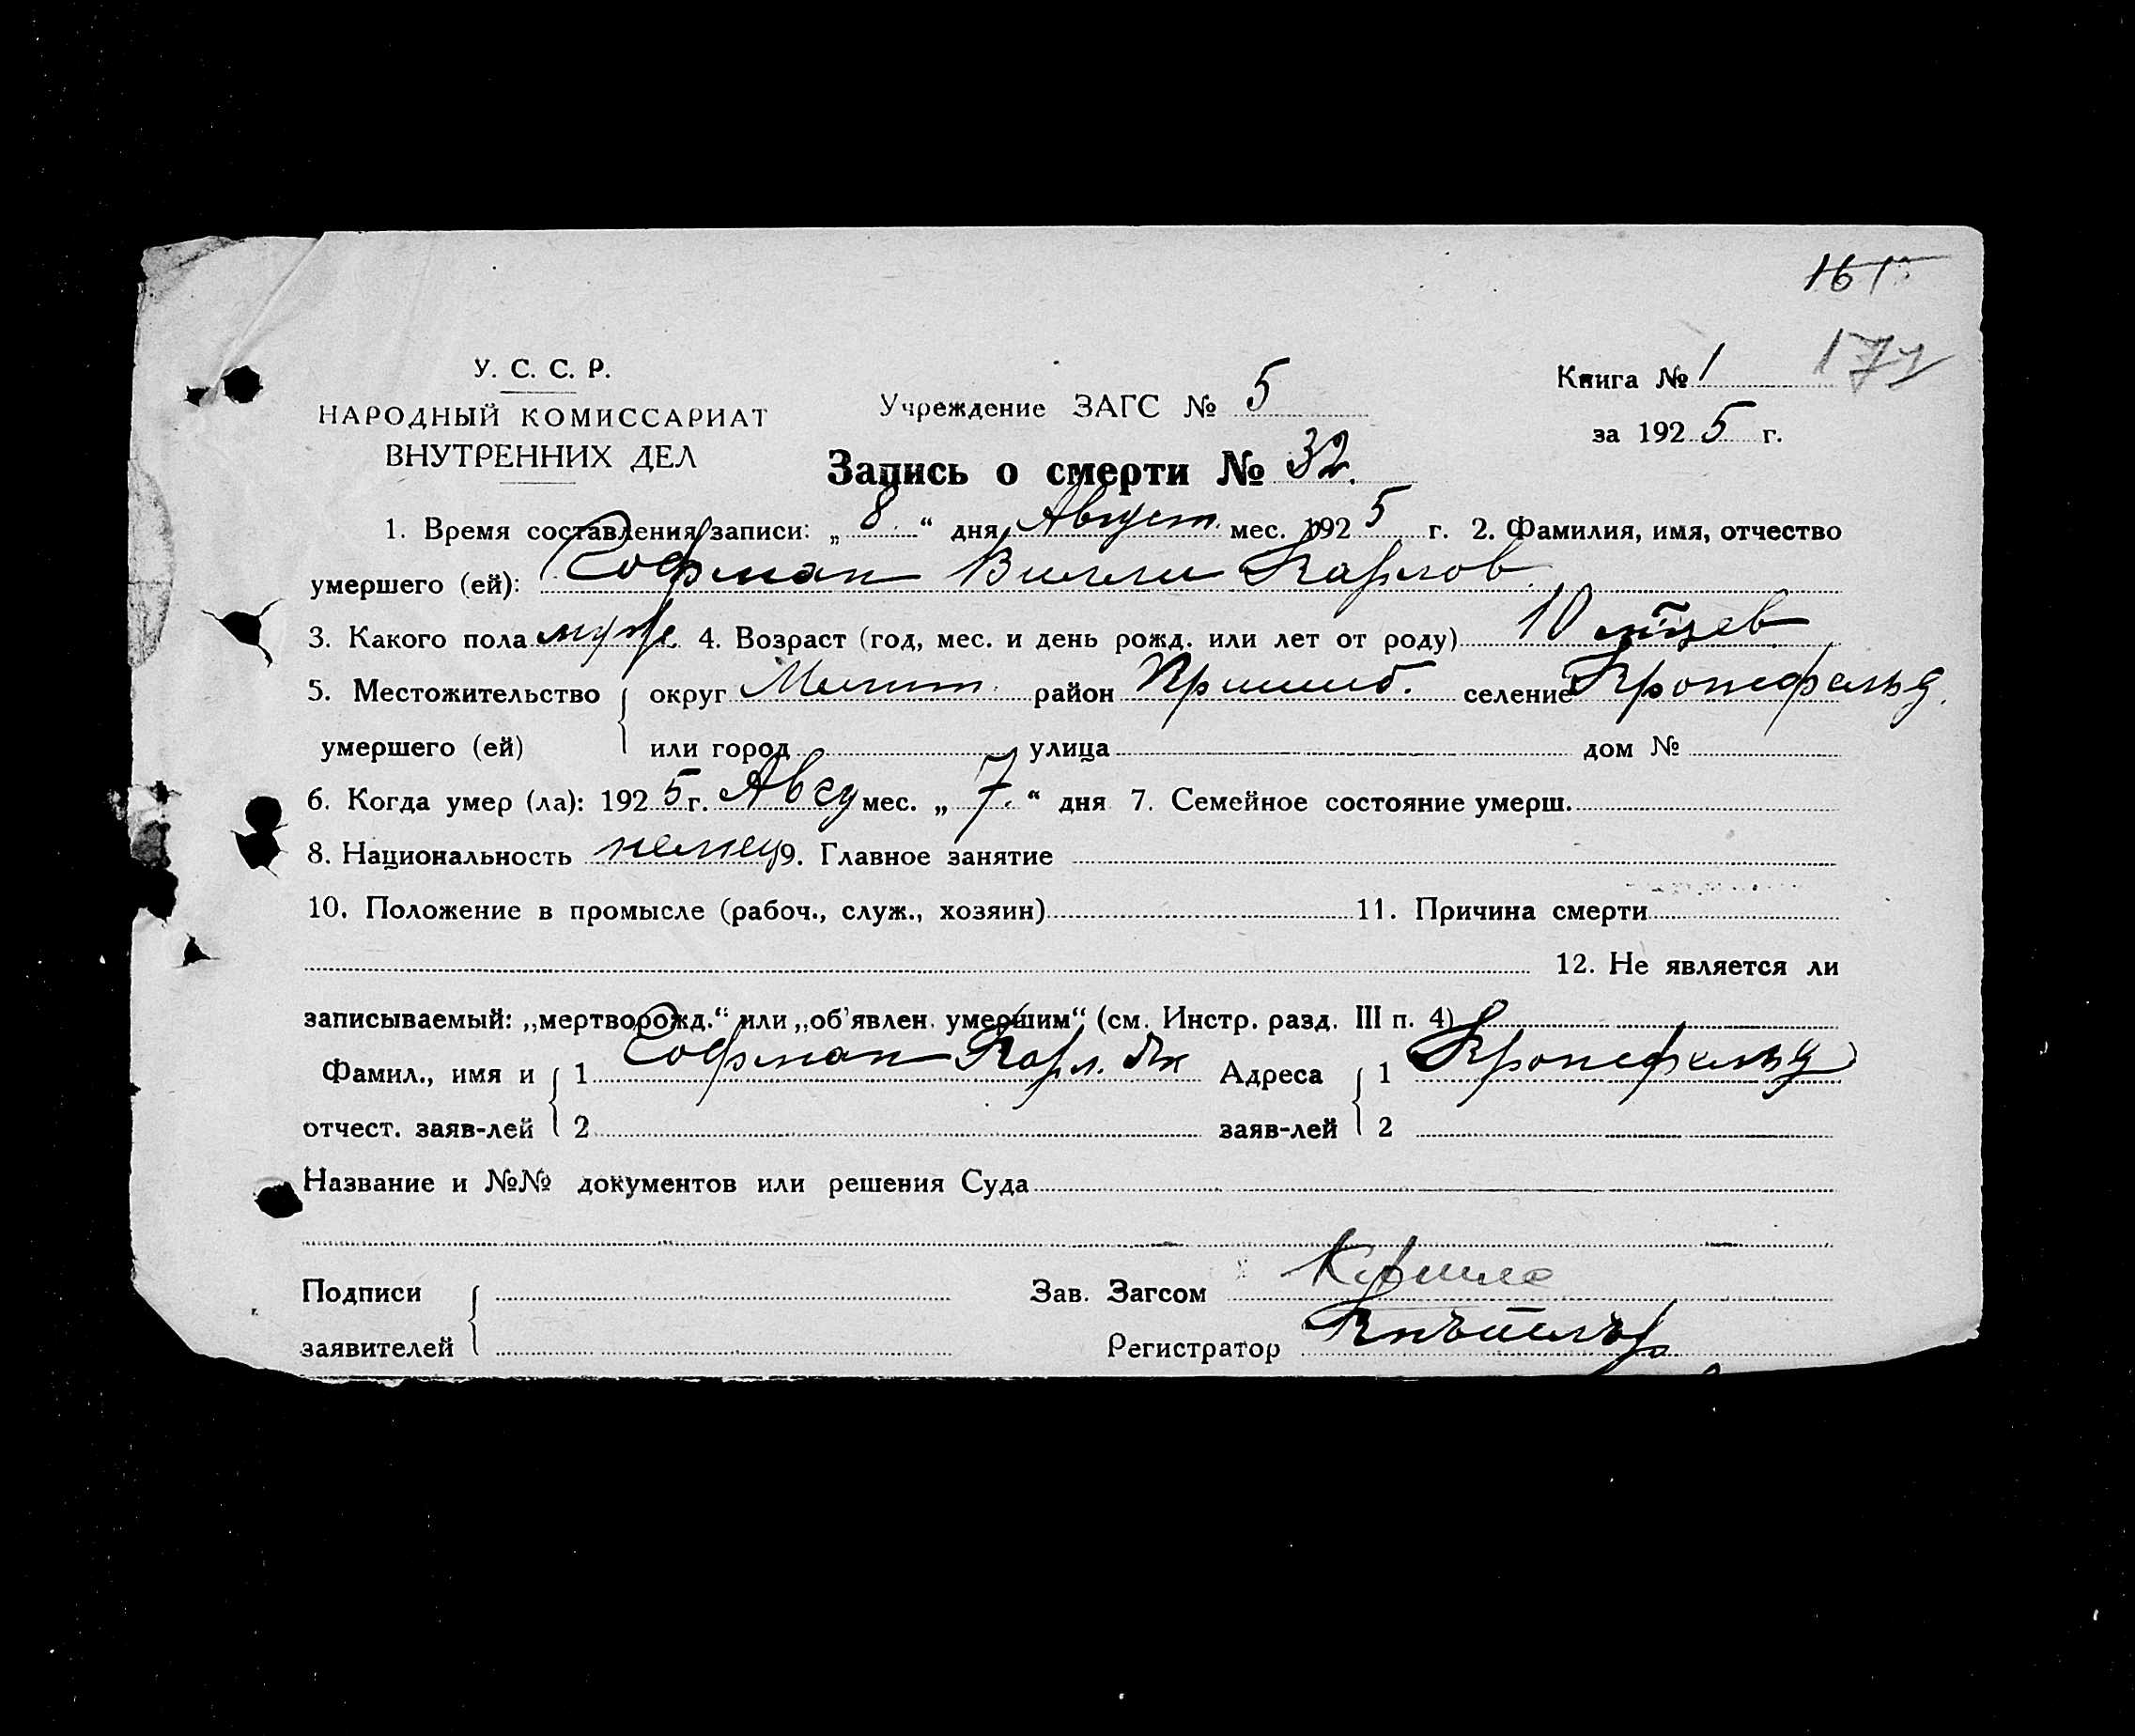 161
177
У. С. С. Р.
НАРОДНЫЙ КОМИССАРИАТ
ВНУТРЕННИХ ДЕЛ
Учреждение ЗАГС № 5
Книга № 1
за 1925 г.
Запись о смерти № 32.
1. Время составления записи: „ 8. “ дня Август. мес. 1925 г. 2. Фамилия, имя, отчество
умершего (ей): Софман Вилли Карлов.
3. Какого пола муж. 4. Возраст (год, мес. и день рожд. или лет от роду) 10
5. Местожительство округ Мелит. район Пришиб. селение Кронсфельд.
умершего (ей) или город улица дом №
6. Когда умер (ла): 1925 г. Авгу мес. „ 7. “ дня 7. Семейное состояние умерш.
8. Национальность немец 9. Главное занятие
10. Положение в промысле (рабоч., служ., хозяин) 11. Причина смерти
12. Не является ли
записываемый: „мертворожд.“ или „об’явлен. умершим“ (см. Инстр. разд. III п. 4)
Фамил., имя и 1 Софман Карл. Адреса 1 Кронсфельд
отчест. заяв-лей 2 заяв-лей 2
Название и №№ документов или решения Суда
Подписи Зав. Загсом
заявителей Регистратор